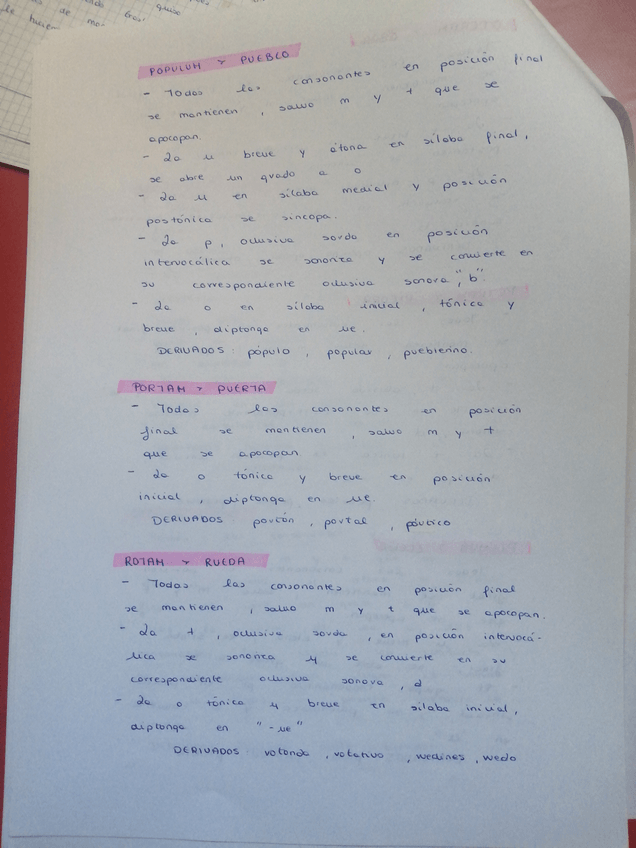 POPULUM > PUEBLO
- Todas las consonantes en posición final
se mantienen, salvo m y t que se
apocopan.
- La u breve y átona en sílaba final,
se abre un grado a o
- La u en sílaba medial y posición
postónica se sincopa.
- La p, oclusiva sorda en posición
intervocálica se sonoriza y se convierte en
su correspondiente oclusiva sonora, "b".
- La o en sílaba inicial, tónica y
breve, diptonga en ue.
DERIVADOS: pópulo, popular, pueblerino.
PORTAM > PUERTA
- Todas las consonantes en posición
final se mantienen, salvo m y t
que se apocopan
- La o tónica y breve en posición
inicial, diptonga en ue.
DERIVADOS portón, portal, pórtico
ROTAM > RUEDA
- Todas las consonantes en posición final
se mantienen, salvo m y t que se apocopan.
- La t, oclusiva sorda, en posición intervocá-
lica se sonoriza y se convierte en su
correspondiente oclusiva sonora, d
- La o tónica y breve en sílaba inicial,
diptonga en "-ue"
DERIVADOS rotonda, rotativo, ruedo